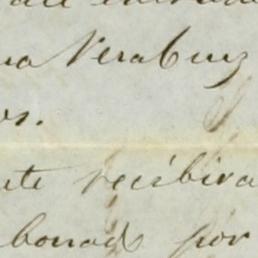 na Vera Cruz
os.
nte recibira
bonads por